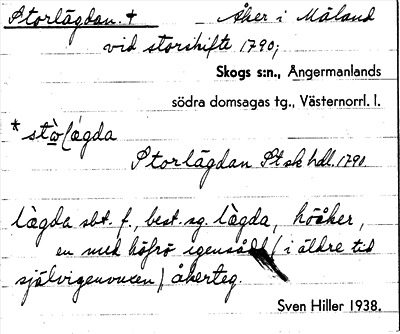 Storlägdan. + Åker i Måland
vid storskifte 1790;
Skogs s:n., Ångermanlands
södra domsagas tg., Västernorrl. l.
*stò̀lägda
Storlägdan St sk hdl. 1790.
lägda sbt. f., best. sg. lägda, höåker,
en med höfrö igensådd (i äldre tid
självigenvuxen) åkerteg.
Sven Hiller 1938.